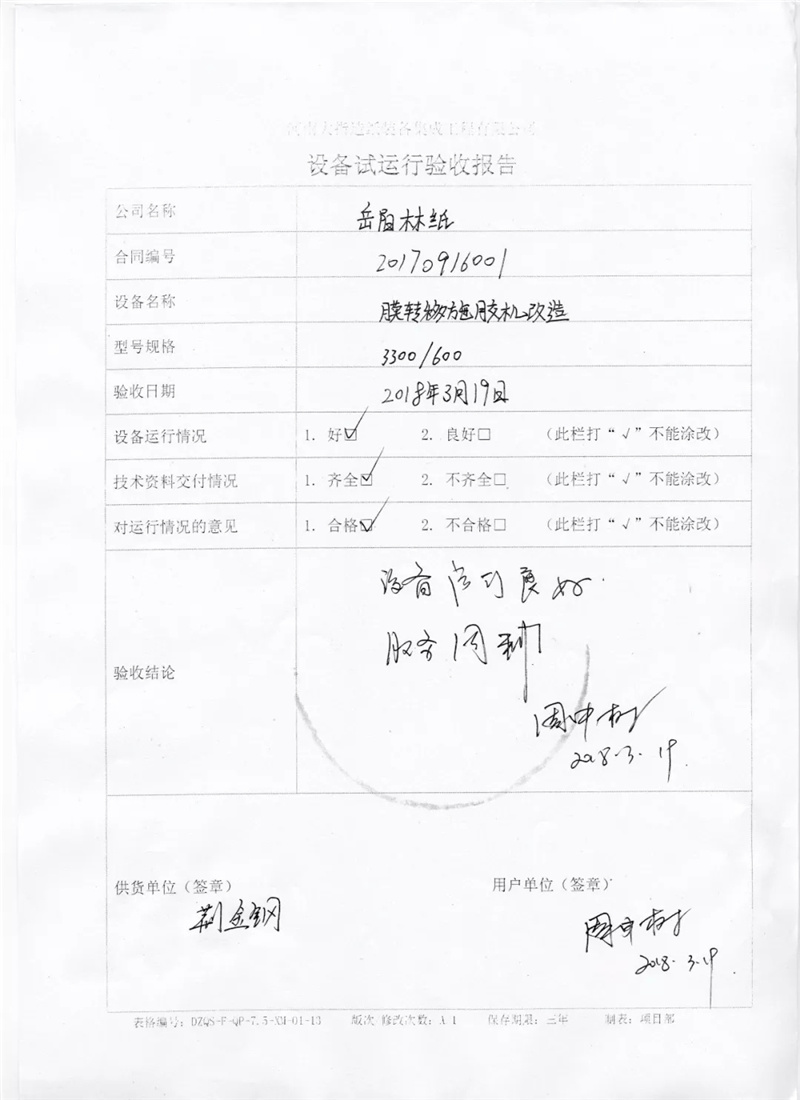 河南大指造纸装备集成工程有限公司
设备试运行验收报告
公司名称 岳阳林纸
合同编号 20170916001
设备名称 膜转移施胶机改造
型号规格 3300/600
验收日期 2018年3月19日
设备运行情况 1. 好☑ 2. 良好□ (此栏打“√”不能涂改)
技术资料交付情况 1. 齐全☑ 2. 不齐全□ (此栏打“√”不能涂改)
对运行情况的意见 1. 合格☑ 2. 不合格□ (此栏打“√”不能涂改)
设备运行良好.
服务周到
验收结论
周中树
2018.3.19.
供货单位(签章) 用户单位(签章)
荆金钢
周中树
2018.3.19.
表格编号: DZQS-F-QP-7.5-XM-01-13 版次 修改次数: A 1 保存期限: 三年 制表: 项目部